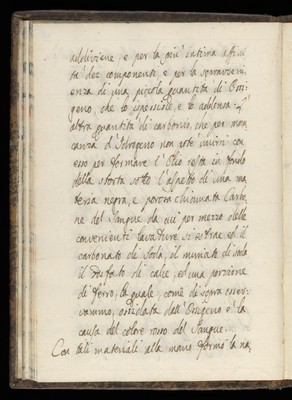 addiviene, e per la più intima affini
tà dei componenti, e per la sopravveni
enza di una piccola quantità di Ossi
geno, che lo ispessisce, e lo addensa: L'
altra quantità di carbonio, che per man
canza d'Idrogeno non pote unirsi con
esso per formare l'Olio resta in fondo
della storta sotto l'aspetto di una ma
teria negra, e porosa chiamata Carbo
ne del Sangue da cui per mezzo delle
convenienti lavature si estrae ed il
carbonato di Soda, il muriato di Soda
il fosfato di calce, ed una porzione
di ferro, la quale, come di sopra osser
vammo, ossidata dall'Ossigeno è la
causa del colore rosso del Sangue.
Con tali materiali alla mano formò la na,